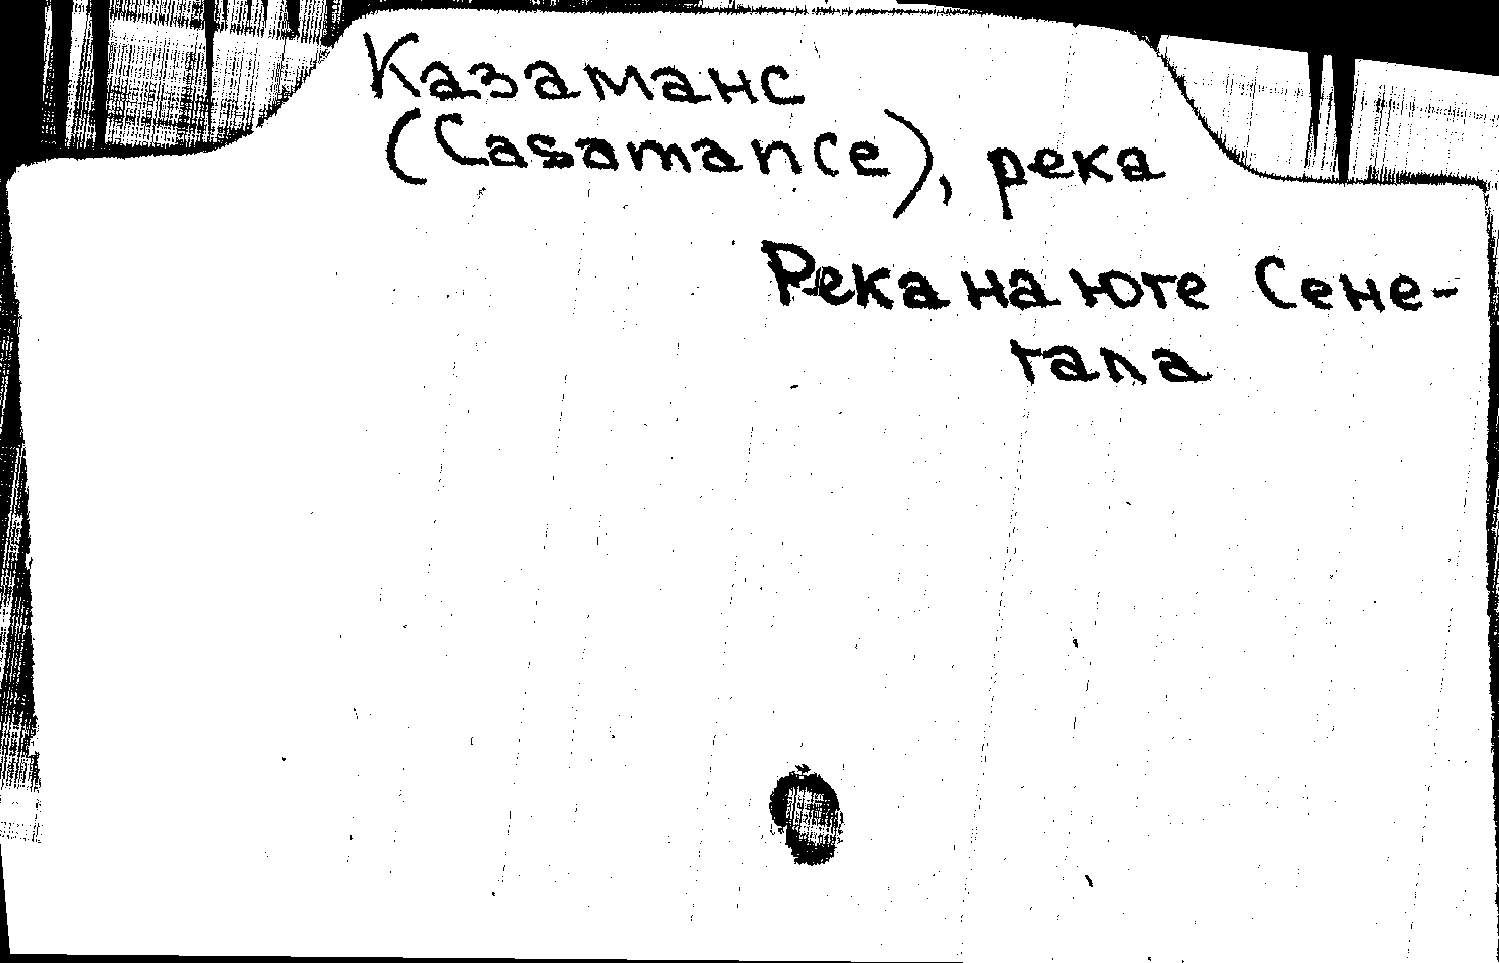 Казаманс
(Casamance), река
Река на юге Сене-
гала